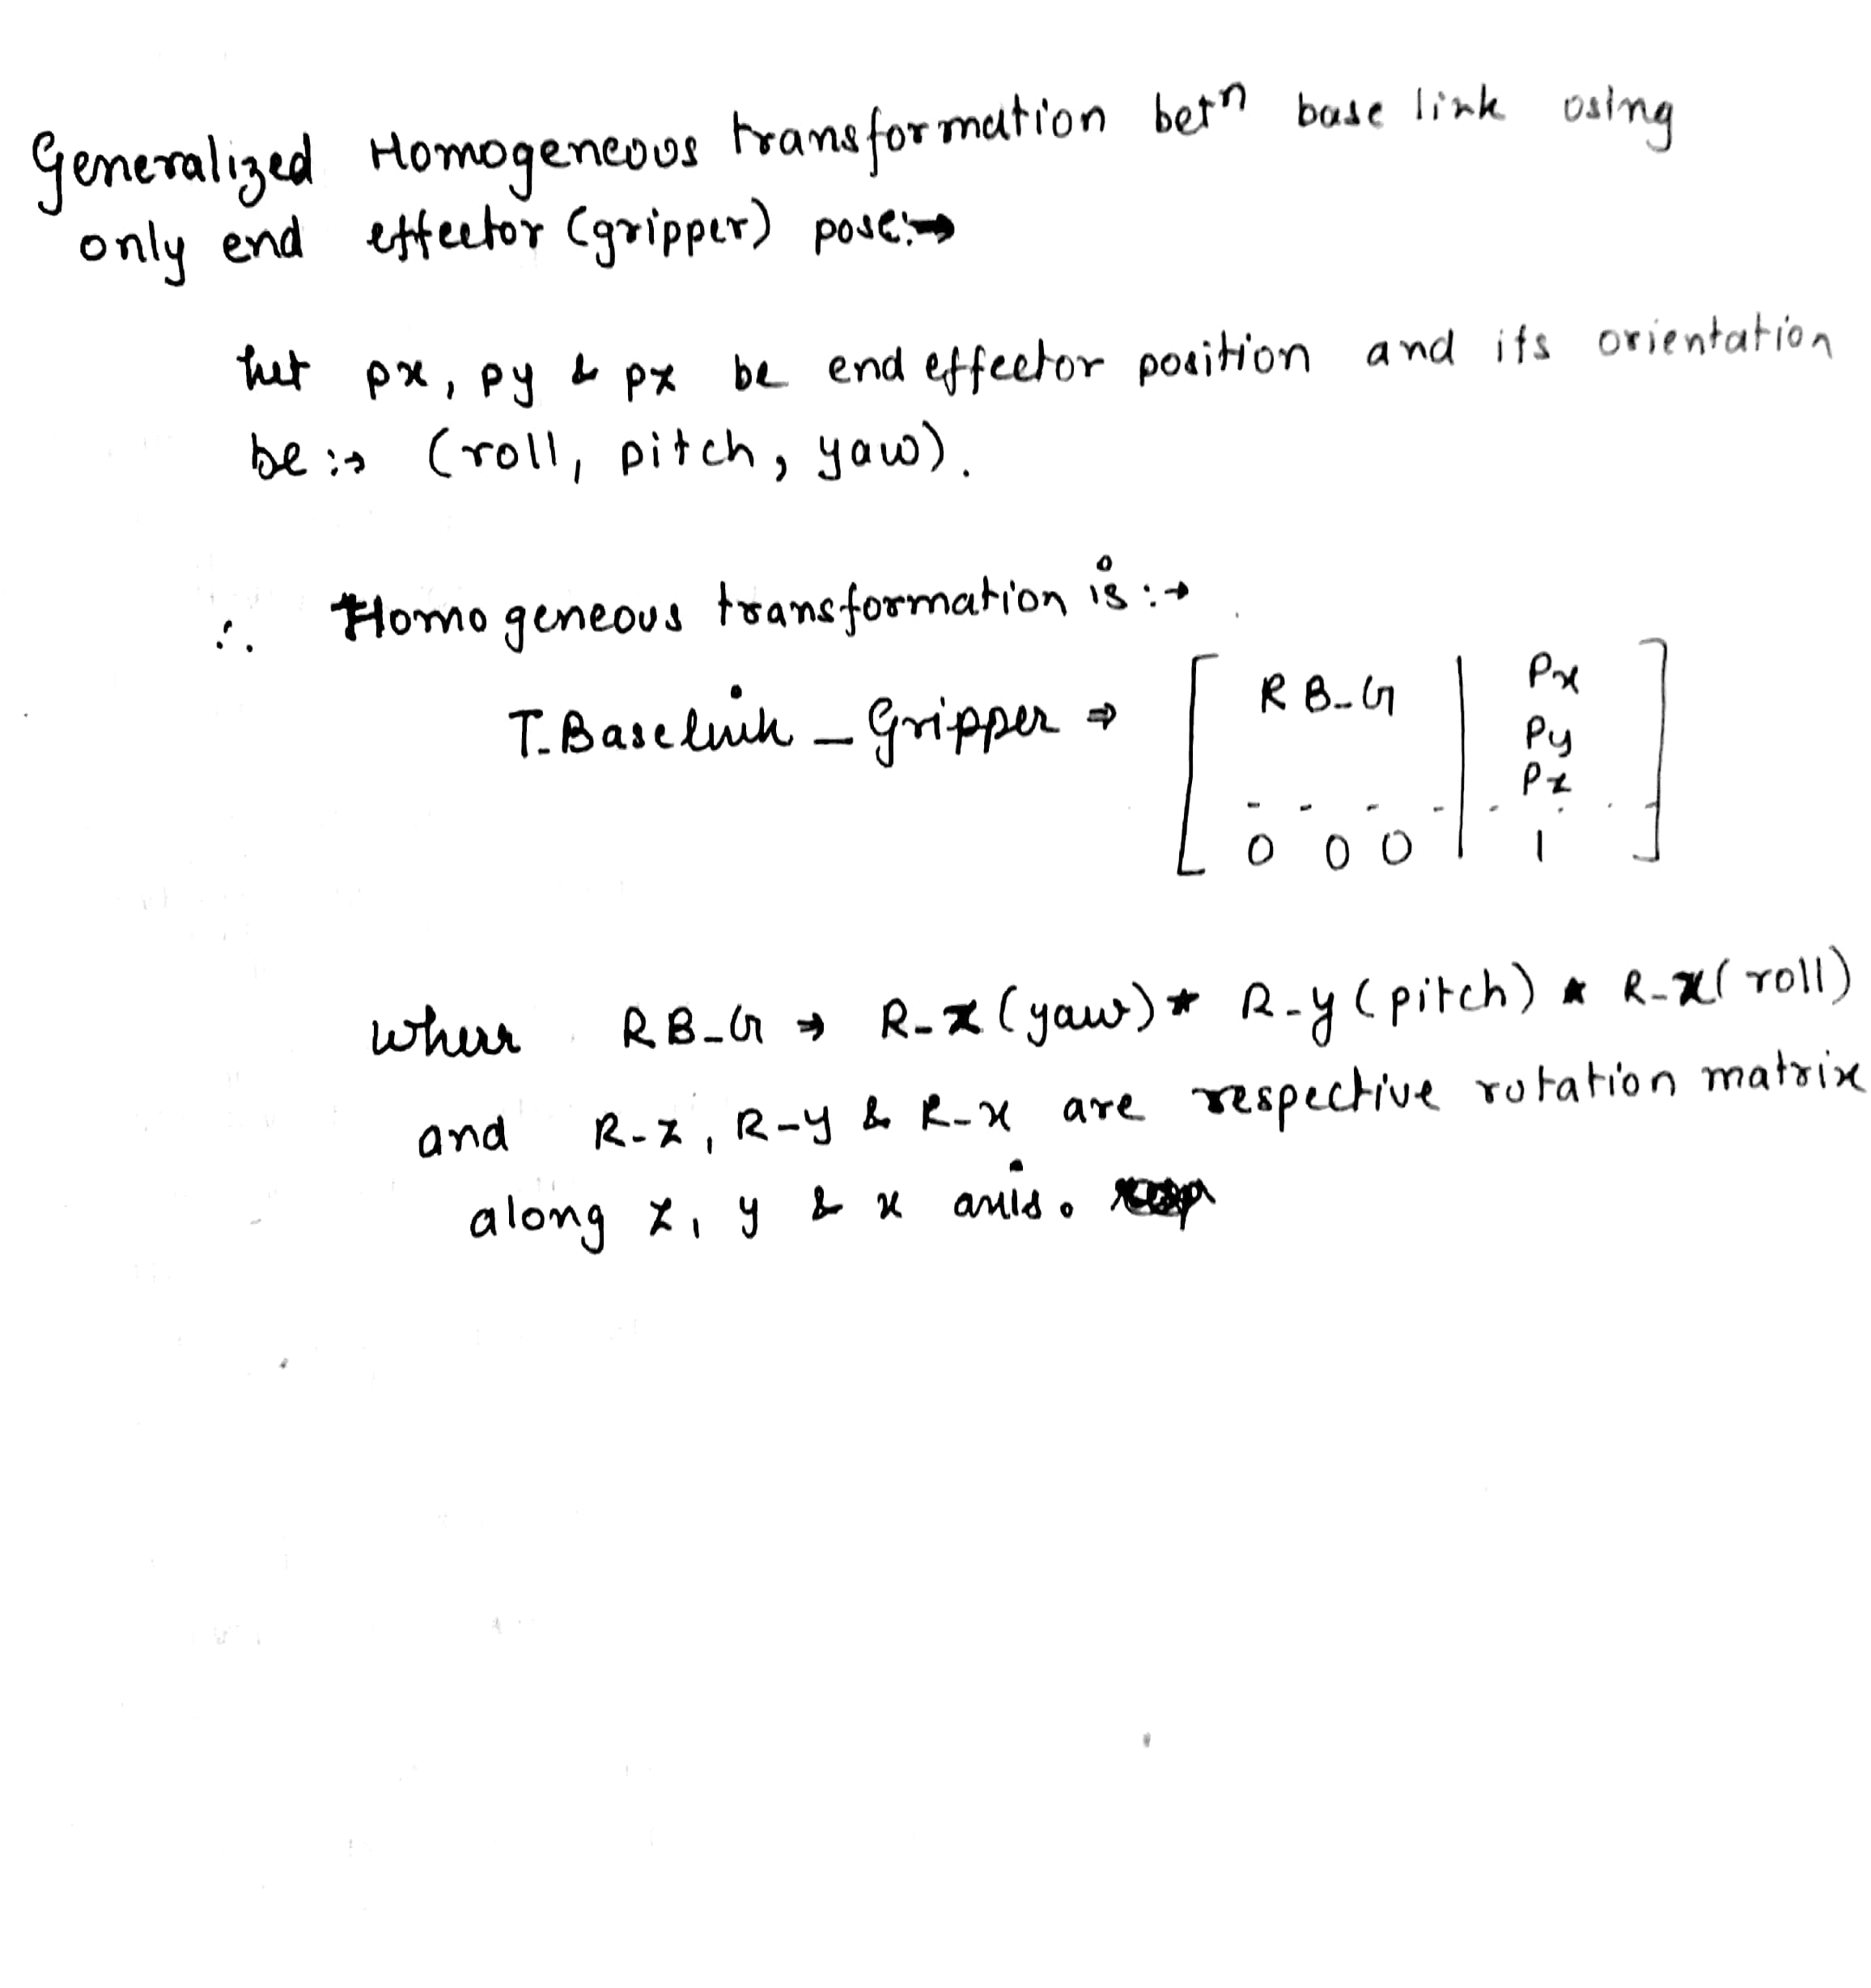 Generalized Homogeneous transformation betn base link using
only end effector (gripper) pose:→
Let px, py & pz be end effector position and its orientation
be:→ (roll, pitch, yaw).
∴ Homogeneous transformation is:→
T_Baselink_Gripper ⇒ [ R B_G | Px
Py
Pz
0 0 0 | 1 ]
where RB_G → R_z(yaw) * R_y(pitch) * R_x(roll)
and R-z, R-y & R-x are respective rotation matrix
along z, y & x axis.